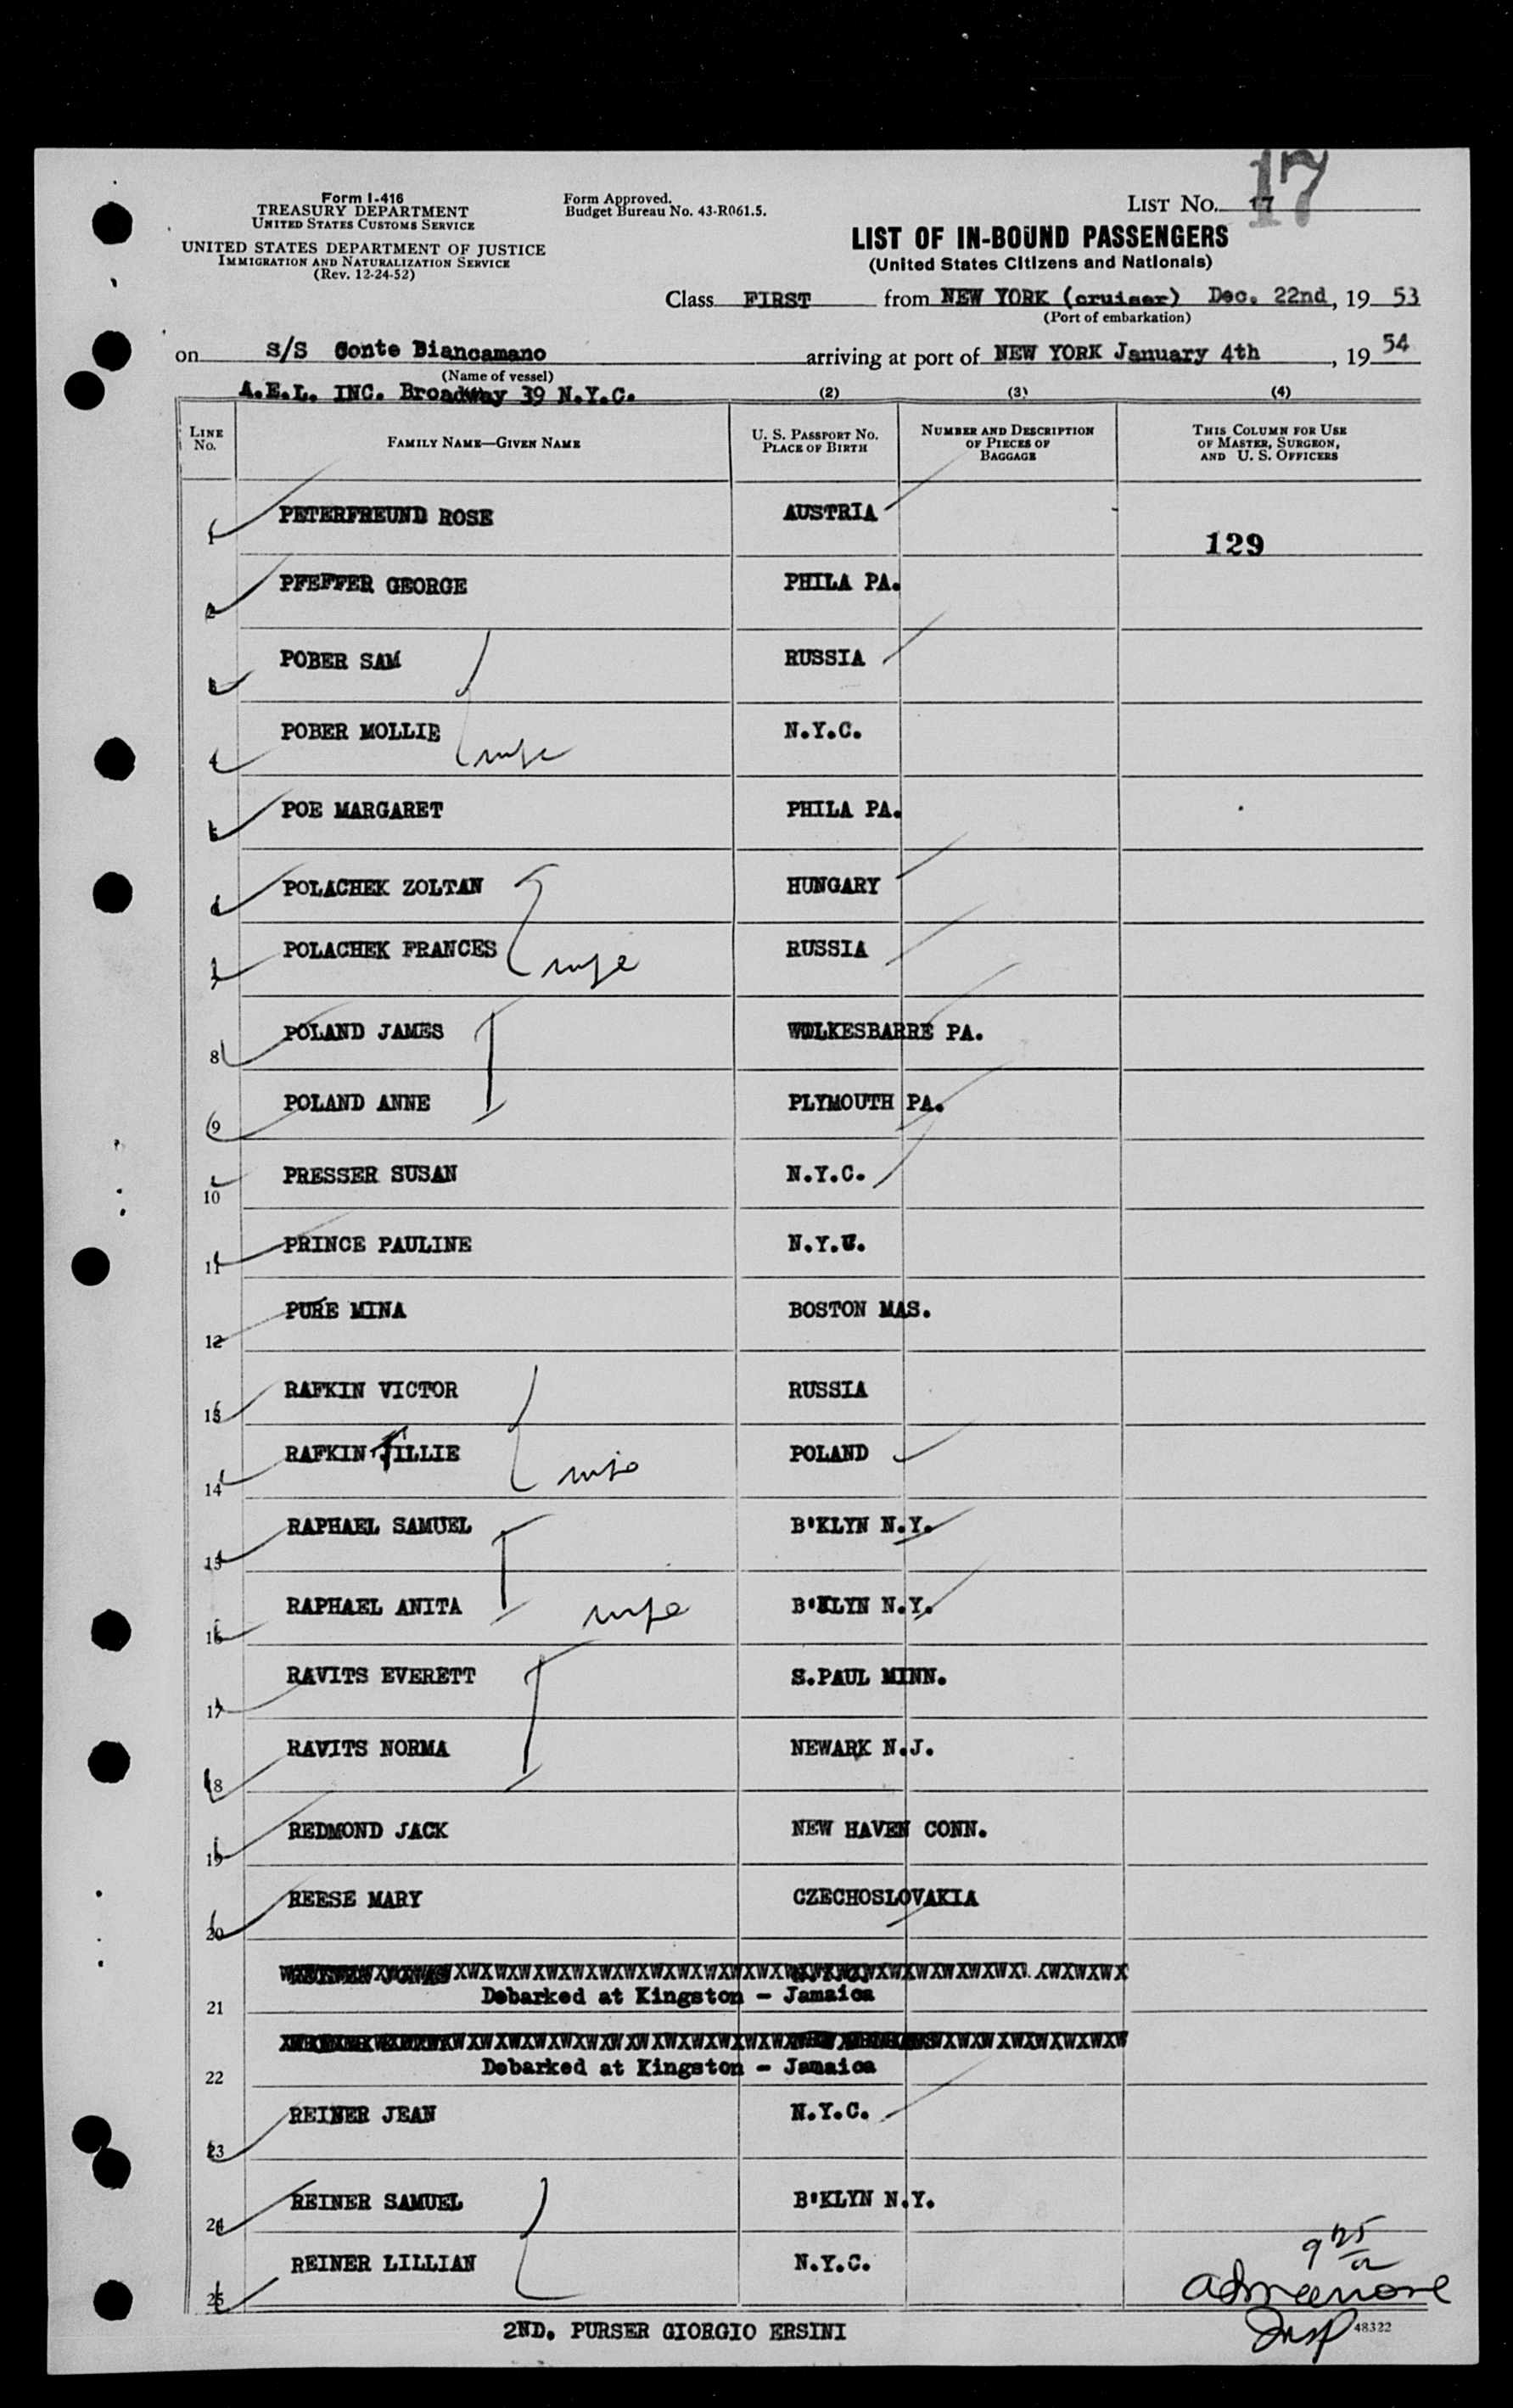 17
Form I-416
TREASURY DEPARTMENT
UNITED STATES CUSTOMS SERVICE
UNITED STATES DEPARTMENT OF JUSTICE
IMMIGRATION AND NATURALIZATION SERVICE
(Rev. 12-24-52)
Form Approved.
Budget Bureau No. 43-R061.5.
LIST NO. 17
LIST OF IN-BOUND PASSENGERS
(United States Citizens and Nationals)
Class FIRST from NEW YORK (cruiser) Dec. 22nd, 19 53
(Port of embarkation)
on s/S Conte Biancamano arriving at port of NEW YORK January 4th, 19 54
(Name of vessel)
A.E.L. INC. Broadway 39 N.Y.C. (2) (3) (4)
LINE No. FAMILY NAME—GIVEN NAME U. S. PASSPORT NO. PLACE OF BIRTH NUMBER AND DESCRIPTION OF PIECES OF BAGGAGE THIS COLUMN FOR USE OF MASTER, SURGEON, AND U. S. OFFICERS
1 PETERFREUND ROSE AUSTRIA 129
2 PFEFFER GEORGE PHILA PA.
3 POBER SAM RUSSIA
4 POBER MOLLIE wife N.Y.C.
5 POE MARGARET PHILA PA.
6 POLACHEK ZOLTAN HUNGARY
7 POLACHEK FRANCES wife RUSSIA
8 POLAND JAMES WOLKESBARRE PA.
9 POLAND ANNE PLYMOUTH PA.
10 PRESSER SUSAN N.Y.C.
11 PRINCE PAULINE N.Y.C.
12 PURE MINA BOSTON MAS.
13 RAFKIN VICTOR RUSSIA
14 RAFKIN TILLIE wife POLAND
15 RAPHAEL SAMUEL B'KLYN N.Y.
16 RAPHAEL ANITA wife B'KLYN N.Y.
17 RAVITS EVERETT S.PAUL MINN.
18 RAVITS NORMA NEWARK N.J.
19 REDMOND JACK NEW HAVEN CONN.
20 REESE MARY CZECHOSLOVAKIA
21 Debarked at Kingston - Jamaica
22 Debarked at Kingston - Jamaica
23 REINER JEAN N.Y.C.
24 REINER SAMUEL B'KLYN N.Y.
25 REINER LILLIAN N.Y.C.
2ND. PURSER GIORGIO ERSINI
Insp
48322